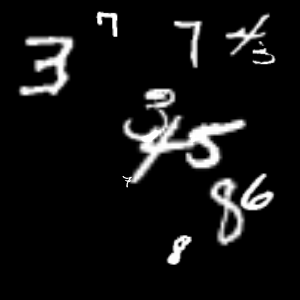 7 7 4 3
3
3 4 5
7
8 6
8